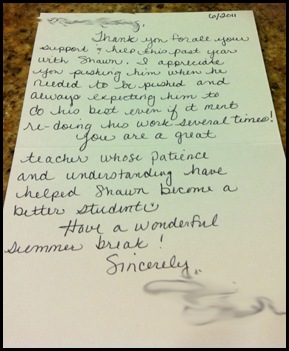 6/2011
Thank you for all your
support & help this past year
with Shawn. I appreciate
you pushing him when he
needed to be pushed and
always expecting him to
do his best even if it ment
re-doing his work several times!
You are a great
teacher whose patience
and understanding have
helped Shawn become a
better student
Have a wonderful
summer break!
Sincerely,